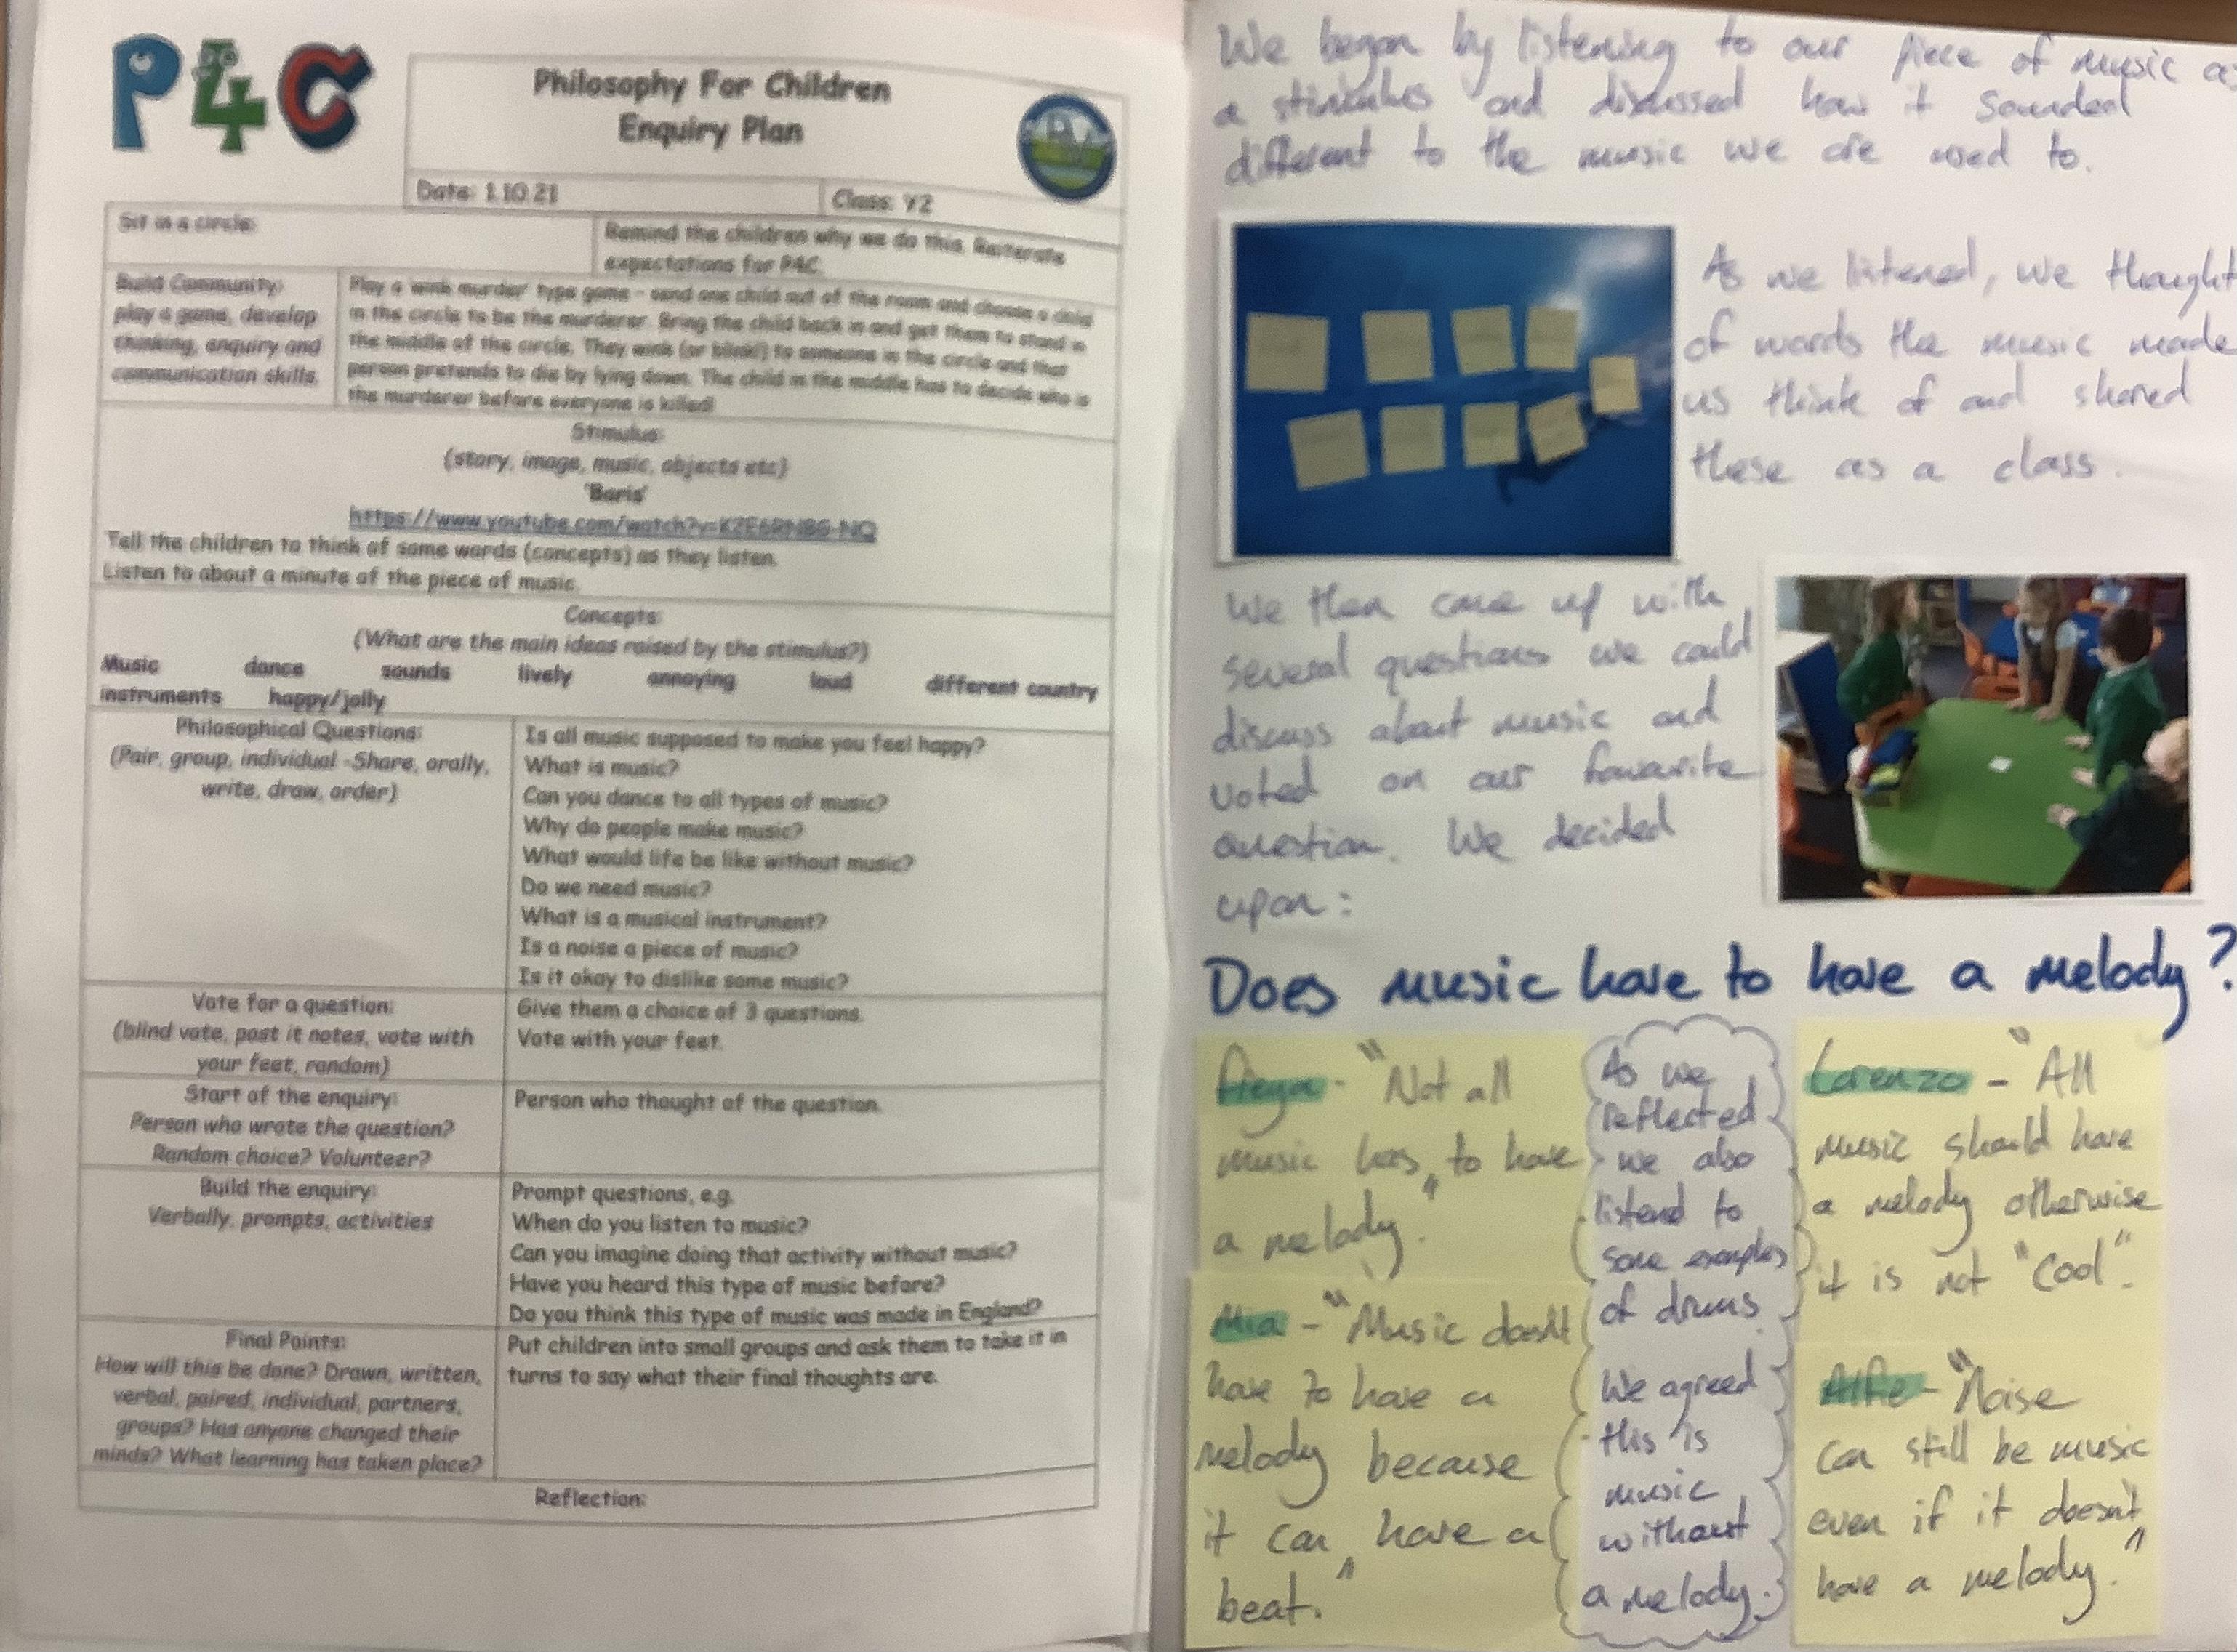 P4C
Philosophy For Children
Enquiry Plan
Date: 1.10.21
Class: Y2
Sit in a circle:
Remind the children why we do this. Reiterate
expectations for P4C.
Build Community:
play a game, develop
thinking, enquiry and
communication skills.
Play a 'wink murder' type game - send one child out of the room and choose a child
in the circle to be the murderer. Bring the child back in and get them to stand in
the middle of the circle. They wink (or blink!) to someone in the circle and that
person pretends to die by lying down. The child in the middle has to decide who is
the murderer before everyone is killed!
Stimulus:
(story, image, music, objects etc)
'Boris'
https://www.youtube.com/watch?v=
Tell the children to think of some words (concepts) as they listen.
Listen to about a minute of the piece of music.
Concepts:
(What are the main ideas raised by the stimulus?)
Music dance sounds lively annoying loud different country
instruments happy/jolly
Philosophical Questions:
(Pair, group, individual -Share, orally,
write, draw, order)
Is all music supposed to make you feel happy?
What is music?
Can you dance to all types of music?
Why do people make music?
What would life be like without music?
Do we need music?
What is a musical instrument?
Is a noise a piece of music?
Is it okay to dislike some music?
Vote for a question:
(blind vote, post it notes, vote with
your feet, random)
Give them a choice of 3 questions.
Vote with your feet.
Start of the enquiry:
Person who wrote the question?
Random choice? Volunteer?
Person who thought of the question.
Build the enquiry:
Verbally, prompts, activities
Prompt questions, e.g.
When do you listen to music?
Can you imagine doing that activity without music?
Have you heard this type of music before?
Do you think this type of music was made in England?
Final Points:
How will this be done? Drawn, written,
verbal, paired, individual, partners,
groups? Has anyone changed their
minds? What learning has taken place?
Put children into small groups and ask them to take it in
turns to say what their final thoughts are.
Reflection:
We began by listening to our piece of music as
a stimulus and discussed how it sounded
different to the music we are used to.
As we listened, we thought
of words the music made
us think of and shared
these as a class.
We then came up with
several questions we could
discuss about music and
voted on our favourite
question. We decided
upon:
Does music have to have a melody?
Freya - "Not all
music has to have
a melody."
Mia - "Music doesn't
have to have a
melody because
it can have a
beat."
As we
reflected
we also
listend to
some examples
of drums.
We agreed
this is
music
without
a melody.
Lorenzo - "All
music should have
a melody otherwise
it is not "cool".
Alfie - "Noise
can still be music
even if it doesn't
have a melody."